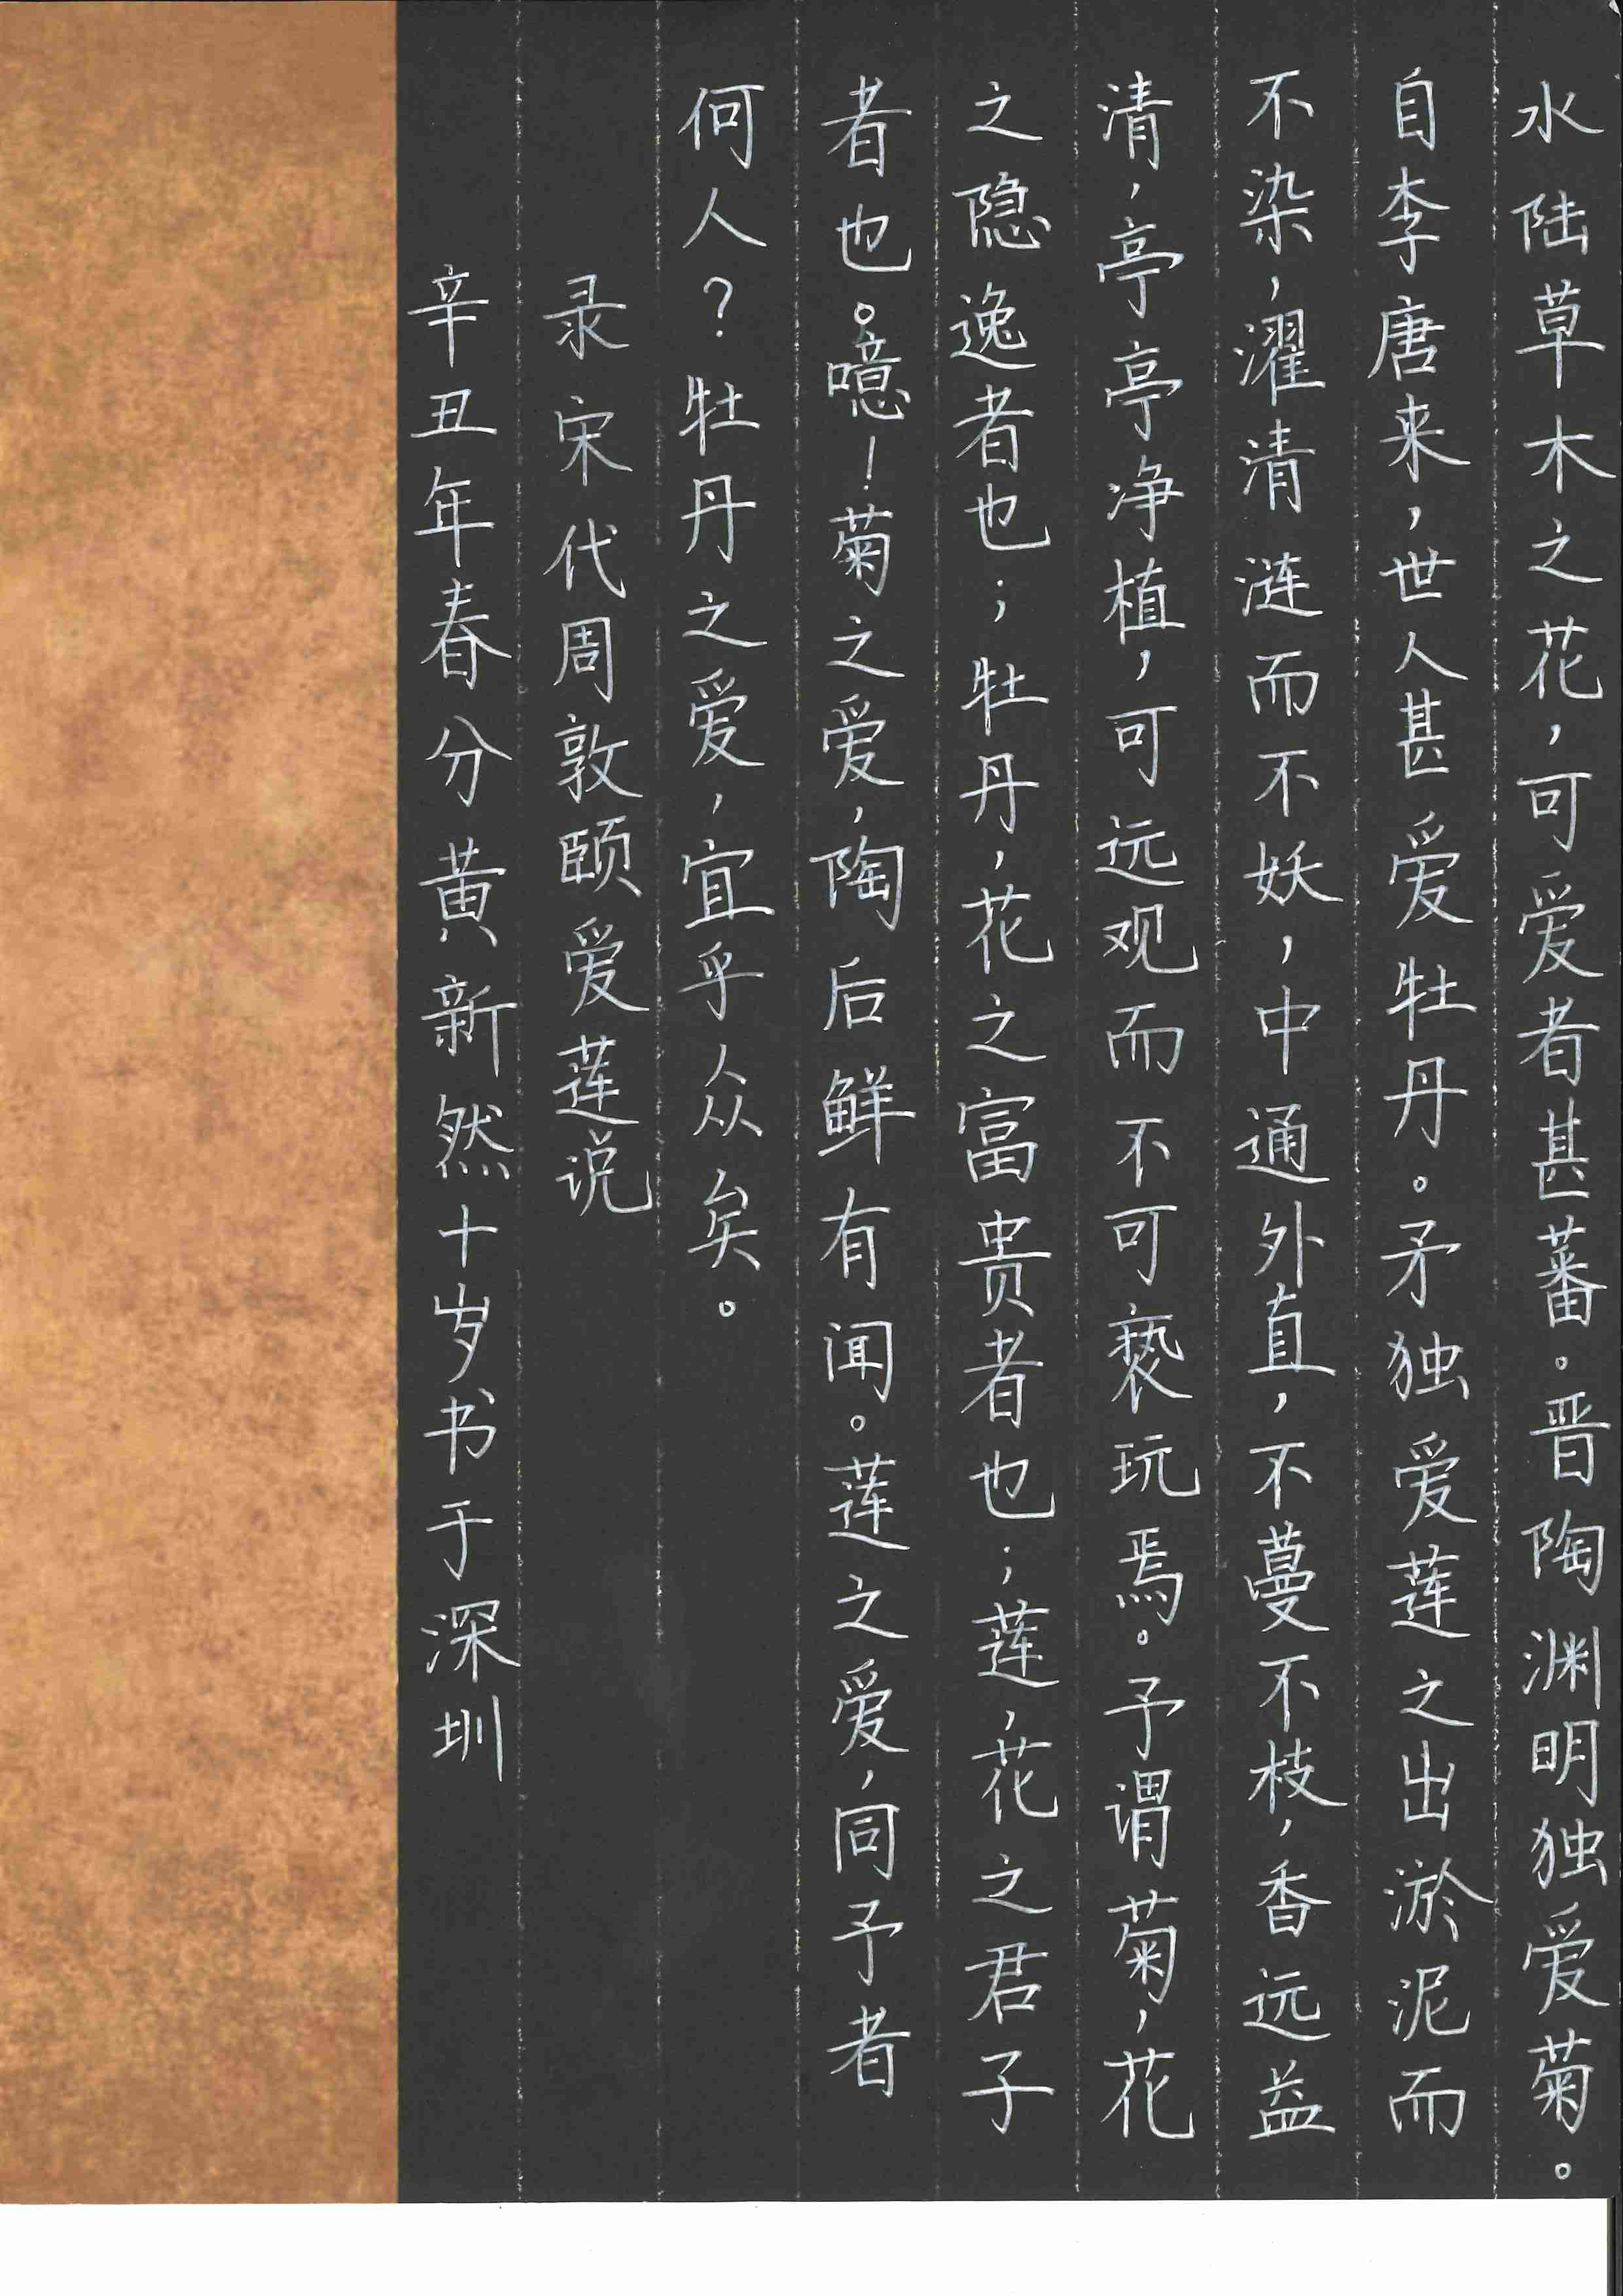 水陆草木之花，可爱者甚蕃。晋陶渊明独爱菊。
自李唐来，世人甚爱牡丹。矛独爱莲之出淤泥而
不染，濯清涟而不妖，中通外直，不蔓不枝，香远益
清，亭亭净植，可远观而不可亵玩焉。予谓菊，花
之隐逸者也；牡丹，花之富贵者也；莲，花之君子
者也。噫！菊之爱，陶后鲜有闻。莲之爱，同予者
何人？牡丹之爱，宜乎众矣。
录宋代周敦颐爱莲说
辛丑年春分黄新然十岁书于深圳